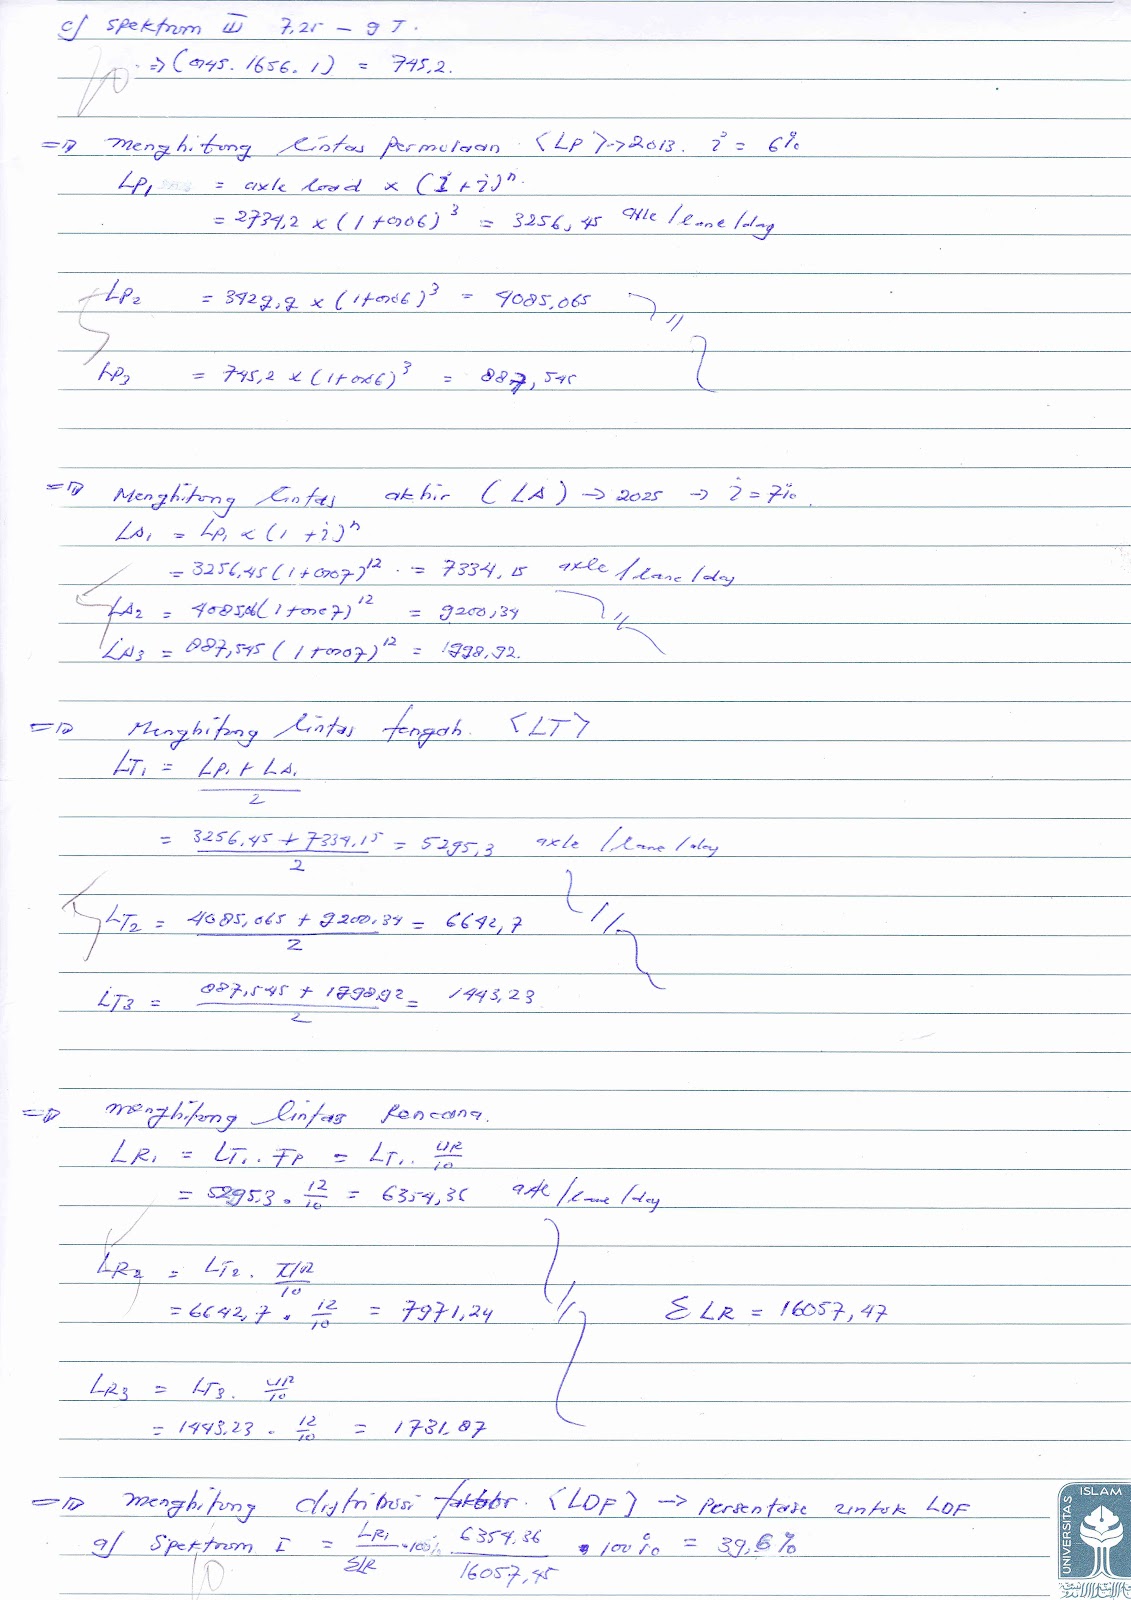 c/ Spektrum III 7,25 – 9 T.
⇒ (0,45. 1656. 1) = 745,2.
⇒ Menghitung lintas permulaan <LP> → 2013. i = 6%
LP1 = axle load x (1 + i)^n
= 2734,2 x (1 + 0,06)^3 = 3256,45 axle/lane/day
LP2 = 3429,9 x (1+0,06)^3 = 4085,065 //
LP3 = 745,2 x (1+0,06)^3 = 887,545
⇒ Menghitung lintas akhir (LA) → 2025 → i = 7%.
LA1 = LP1 x (1 + i)^n
= 3256,45 (1+0,07)^12 = 7334,15 axle/lane/day
LA2 = 4085,06 (1+0,07)^12 = 9200,34 //
LA3 = 887,545 (1+0,07)^12 = 1998,92.
⇒ Menghitung lintas tengah <LT>
LT1 = LP1 + LA1
2
= 3256,45 + 7334,15 = 5295,3 axle/lane/day
2
LT2 = 4085,065 + 9200,34 = 6642,7 //
2
LT3 = 887,545 + 1998,92 = 1443,23
2
⇒ Menghitung lintas Rencana.
LR1 = LT1. FP = LT1. UR/10
= 5295,3 . 12/10 = 6354,36 axle/lane/day
LR2 = LT2. UR/10
= 6642,7 . 12/10 = 7971,24 // Σ LR = 16057,47
LR3 = LT3. UR/10
= 1443,23 . 12/10 = 1731,87
⇒ Menghitung distribusi faktor <LDF> → Persentase untuk LDF
a/ Spektrum I = LR1/ΣLR .100% 6354,36/16057,45 . 100% = 39,6%
UNIVERSITAS ISLAM